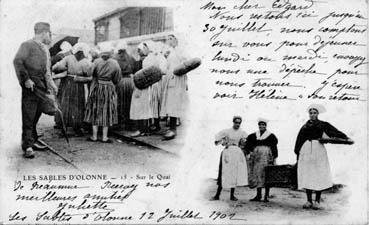 Mon cher Edgard
Nous restons ici jusqu'au
30 juillet, nous comptons
sur vous pour déjeuner
lundi ou mardi envoyez
nous une dépêche pour
nous trouver. J'espère
voir Hélène à son retour
LES SABLES D'OLONNE — 15 - Sur le Quai
Recevez nos
meilleures amitiés
Juliette
Les Sables d'Olonne 12 Juillet 1902